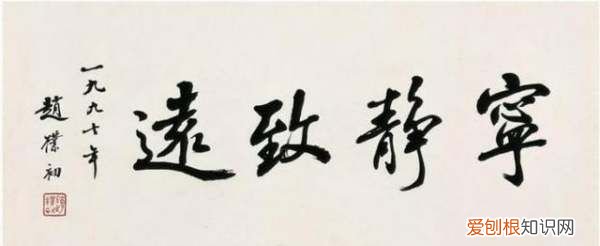 寧靜致遠
一九九七年
趙樸初
爱刨根知识网